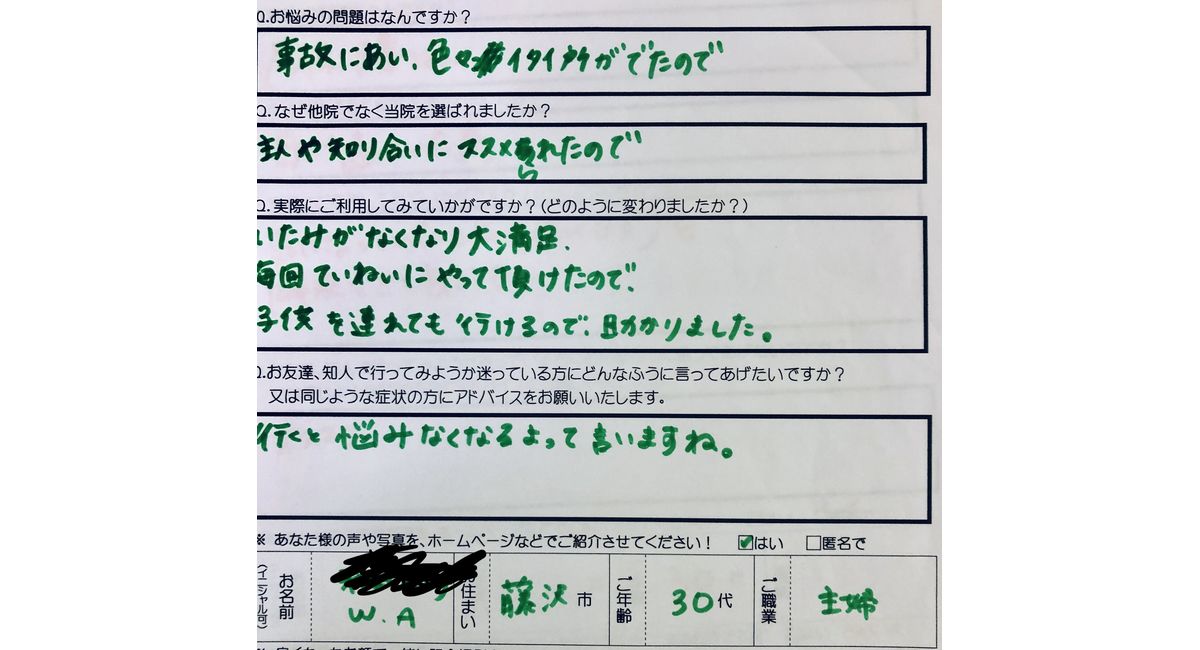 Q.お悩みの問題はなんですか？
事故にあい、色々イタイカ所がでたので
Q.なぜ他院でなく当院を選ばれましたか？
主人や知り合いにススメられたので
Q.実際にご利用してみていかがですか？（どのように変わりましたか？）
いたみがなくなり大満足、
毎回ていねいにやって頂けたので、
子供を連れても行けるので、助かりました。
Q.お友達、知人で行ってみようか迷っている方にどんなふうに言ってあげたいですか？
又は同じような症状の方にアドバイスをお願いいたします。
行くと悩みなくなるよって言いますね。
※ あなた様の声や写真を、ホームページなどでご紹介させてください！ ☑はい □匿名で
お名前（イニシャル可） W.A お住まい 藤沢市 ご年齢 30代 ご職業 主婦